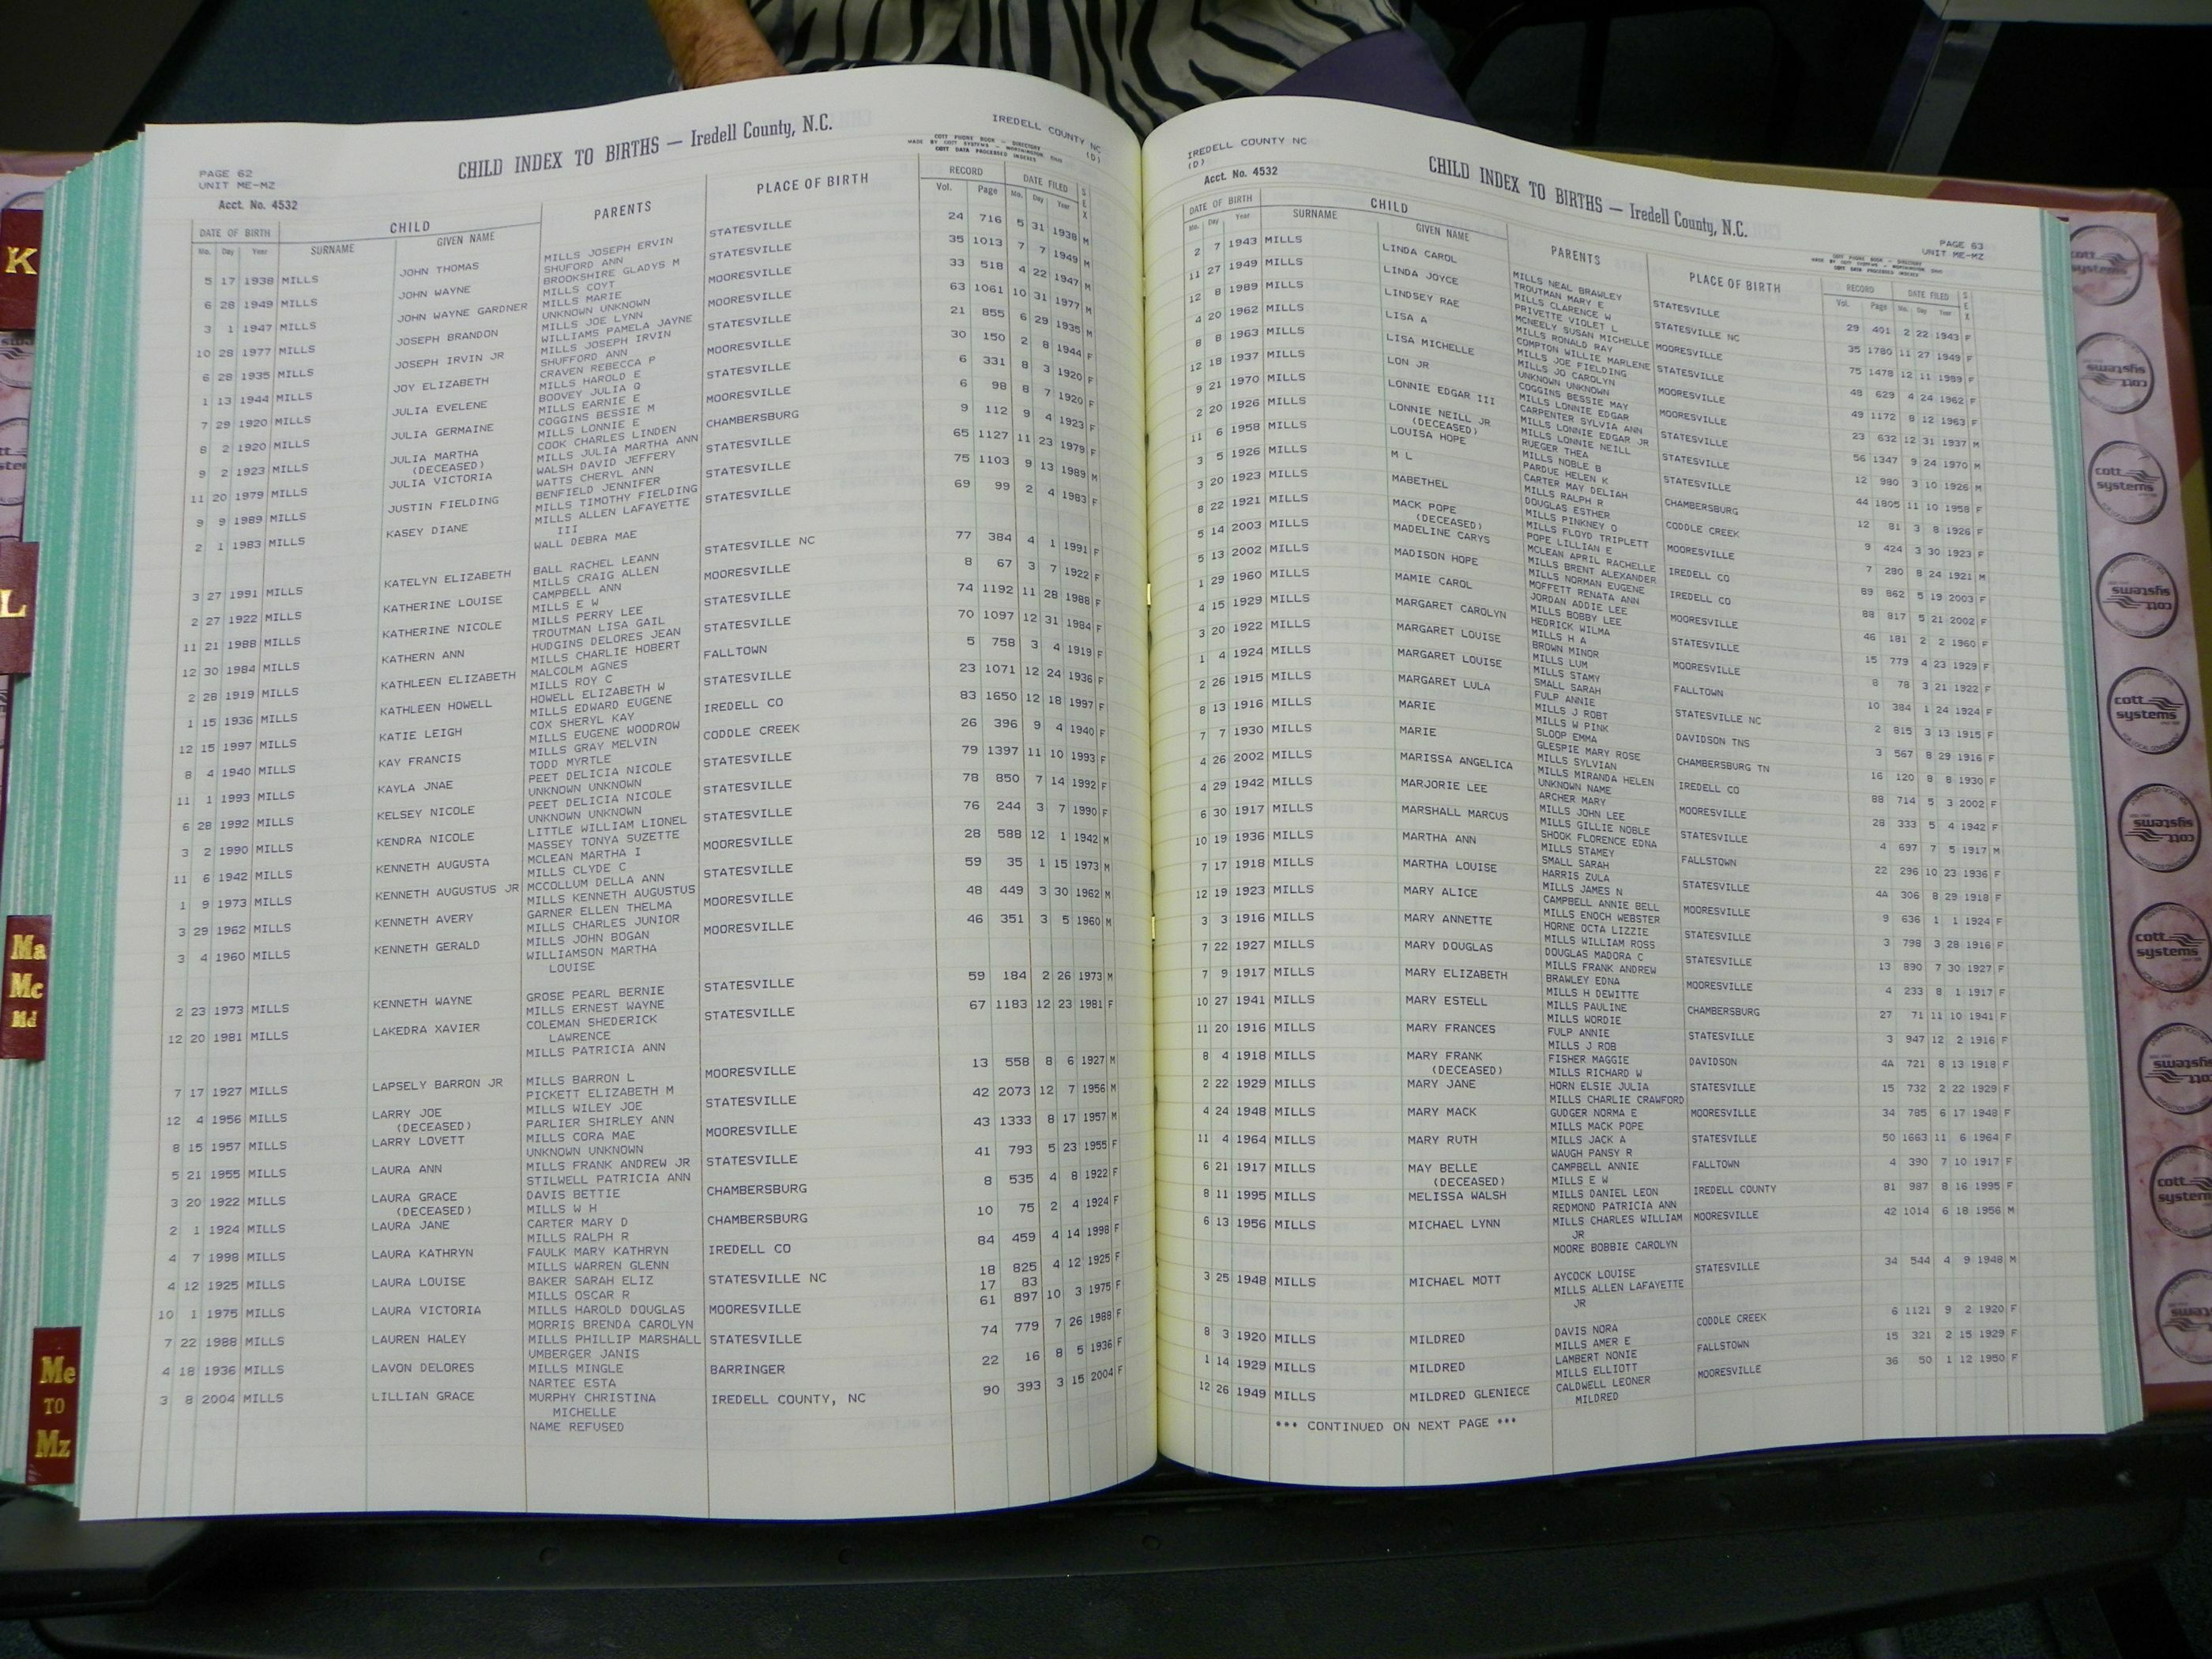 PAGE 62
UNIT ME-MZ
Acct. No. 4532
CHILD INDEX TO BIRTHS — Iredell County, N.C.
IREDELL COUNTY NC
(D)
COTT PHONE BOOK - DIRECTORY
MADE BY COTT SYSTEMS - WORTHINGTON, OHIO
COTT DATA PROCESSED INDEXES
DATE OF BIRTH CHILD PARENTS PLACE OF BIRTH RECORD DATE FILED SEX
Mo. Day Year SURNAME GIVEN NAME Vol. Page Mo. Day Year
5 17 1938 MILLS JOHN THOMAS MILLS JOSEPH ERVIN STATESVILLE 24 716 5 31 1938 M
SHUFORD ANN
6 28 1949 MILLS JOHN WAYNE BROOKSHIRE GLADYS M STATESVILLE 35 1013 7 7 1949 M
MILLS COYT
3 1 1947 MILLS JOHN WAYNE GARDNER MILLS MARIE MOORESVILLE 33 518 4 22 1947 M
UNKNOWN UNKNOWN
10 28 1977 MILLS JOSEPH BRANDON MILLS JOE LYNN MOORESVILLE 63 1061 10 31 1977 M
WILLIAMS PAMELA JAYNE
6 28 1935 MILLS JOSEPH IRVIN JR MILLS JOSEPH IRVIN STATESVILLE 21 855 6 29 1935 M
SHUFFORD ANN
1 13 1944 MILLS JOY ELIZABETH CRAVEN REBECCA P MOORESVILLE 30 150 2 8 1944 F
MILLS HAROLD E
7 29 1920 MILLS JULIA EVELENE BOOVEY JULIA Q STATESVILLE 6 331 8 3 1920 F
MILLS EARNIE E
8 2 1920 MILLS JULIA GERMAINE COGGINS BESSIE M MOORESVILLE 6 98 8 7 1920 F
MILLS LONNIE E
9 2 1923 MILLS JULIA MARTHA COOK CHARLES LINDEN CHAMBERSBURG 9 112 9 4 1923 F
(DECEASED) MILLS JULIA MARTHA ANN
11 20 1979 MILLS JULIA VICTORIA WALSH DAVID JEFFERY STATESVILLE 65 1127 11 23 1979 F
WATTS CHERYL ANN
9 9 1989 MILLS JUSTIN FIELDING BENFIELD JENNIFER STATESVILLE 75 1103 9 13 1989 M
MILLS TIMOTHY FIELDING
2 1 1983 MILLS KASEY DIANE MILLS ALLEN LAFAYETTE STATESVILLE 69 99 2 4 1983 F
III
WALL DEBRA MAE
3 27 1991 MILLS KATELYN ELIZABETH BALL RACHEL LEANN STATESVILLE NC 77 384 4 1 1991 F
MILLS CRAIG ALLEN
2 27 1922 MILLS KATHERINE LOUISE CAMPBELL ANN MOORESVILLE 8 67 3 7 1922 F
MILLS E W
11 21 1988 MILLS KATHERINE NICOLE MILLS PERRY LEE STATESVILLE 74 1192 11 28 1988 F
TROUTMAN LISA GAIL
12 30 1984 MILLS KATHERN ANN HUDGINS DELORES JEAN STATESVILLE 70 1097 12 31 1984 F
MILLS CHARLIE HOBERT
2 28 1919 MILLS KATHLEEN ELIZABETH MALCOLM AGNES FALLTOWN 5 758 3 4 1919 F
MILLS ROY C
1 15 1936 MILLS KATHLEEN HOWELL HOWELL ELIZABETH W STATESVILLE 23 1071 12 24 1936 F
MILLS EDWARD EUGENE
12 15 1997 MILLS KATIE LEIGH COX SHERYL KAY IREDELL CO 83 1650 12 18 1997 F
MILLS EUGENE WOODROW
8 4 1940 MILLS KAY FRANCIS MILLS GRAY MELVIN CODDLE CREEK 26 396 9 4 1940 F
TODD MYRTLE
11 1 1993 MILLS KAYLA JNAE PEET DELICIA NICOLE STATESVILLE 79 1397 11 10 1993 F
UNKNOWN UNKNOWN
6 28 1992 MILLS KELSEY NICOLE PEET DELICIA NICOLE STATESVILLE 78 850 7 14 1992 F
UNKNOWN UNKNOWN
3 2 1990 MILLS KENDRA NICOLE LITTLE WILLIAM LIONEL STATESVILLE 76 244 3 7 1990 F
MASSEY TONYA SUZETTE
11 6 1942 MILLS KENNETH AUGUSTA MCLEAN MARTHA I MOORESVILLE 28 588 12 1 1942 M
MILLS CLYDE C
1 9 1973 MILLS KENNETH AUGUSTUS JR MCCOLLUM DELLA ANN STATESVILLE 59 35 1 15 1973 M
MILLS KENNETH AUGUSTUS
3 29 1962 MILLS KENNETH AVERY GARNER ELLEN THELMA MOORESVILLE 48 449 3 30 1962 M
MILLS CHARLES JUNIOR
3 4 1960 MILLS KENNETH GERALD MILLS JOHN BOGAN MOORESVILLE 46 351 3 5 1960 M
WILLIAMSON MARTHA
LOUISE
2 23 1973 MILLS KENNETH WAYNE GROSE PEARL BERNIE STATESVILLE 59 184 2 26 1973 M
MILLS ERNEST WAYNE
12 20 1981 MILLS LAKEDRA XAVIER COLEMAN SHEDERICK STATESVILLE 67 1183 12 23 1981 F
LAWRENCE
MILLS PATRICIA ANN
7 17 1927 MILLS LAPSELY BARRON JR MILLS BARRON L MOORESVILLE 13 558 8 6 1927 M
PICKETT ELIZABETH M
12 4 1956 MILLS LARRY JOE MILLS WILEY JOE STATESVILLE 42 2073 12 7 1956 M
(DECEASED) PARLIER SHIRLEY ANN
8 15 1957 MILLS LARRY LOVETT MILLS CORA MAE MOORESVILLE 43 1333 8 17 1957 M
UNKNOWN UNKNOWN
5 21 1955 MILLS LAURA ANN MILLS FRANK ANDREW JR STATESVILLE 41 793 5 23 1955 F
STILWELL PATRICIA ANN
3 20 1922 MILLS LAURA GRACE DAVIS BETTIE CHAMBERSBURG 8 535 4 8 1922 F
(DECEASED) MILLS W H
2 1 1924 MILLS LAURA JANE CARTER MARY D CHAMBERSBURG 10 75 2 4 1924 F
MILLS RALPH R
4 7 1998 MILLS LAURA KATHRYN FAULK MARY KATHRYN IREDELL CO 84 459 4 14 1998 F
MILLS WARREN GLENN
4 12 1925 MILLS LAURA LOUISE BAKER SARAH ELIZ STATESVILLE NC 18 825 4 12 1925 F
MILLS OSCAR R 17 83
10 1 1975 MILLS LAURA VICTORIA MILLS HAROLD DOUGLAS MOORESVILLE 61 897 10 3 1975 F
MORRIS BRENDA CAROLYN
7 22 1988 MILLS LAUREN HALEY MILLS PHILLIP MARSHALL STATESVILLE 74 779 7 26 1988 F
UMBERGER JANIS
4 18 1936 MILLS LAVON DELORES MILLS MINGLE BARRINGER 22 16 8 5 1936 F
NARTEE ESTA
3 8 2004 MILLS LILLIAN GRACE MURPHY CHRISTINA IREDELL COUNTY, NC 90 393 3 15 2004 F
MICHELLE
NAME REFUSED
IREDELL COUNTY NC
(D)
Acct. No. 4532
CHILD INDEX TO BIRTHS — Iredell County, N.C.
PAGE 63
UNIT ME-MZ
COTT PHONE BOOK - DIRECTORY
MADE BY COTT SYSTEMS - WORTHINGTON, OHIO
COTT DATA PROCESSED INDEXES
DATE OF BIRTH CHILD PARENTS PLACE OF BIRTH RECORD DATE FILED SEX
Mo. Day Year SURNAME GIVEN NAME Vol. Page Mo. Day Year
2 7 1943 MILLS LINDA CAROL MILLS NEAL BRAWLEY STATESVILLE 29 401 2 22 1943 F
TROUTMAN MARY E
11 27 1949 MILLS LINDA JOYCE MILLS CLARENCE W STATESVILLE NC 35 1780 11 27 1949 F
PRIVETTE VIOLET L
12 8 1989 MILLS LINDSEY RAE MCNEELY SUSAN MICHELLE MOORESVILLE 75 1478 12 11 1989 F
MILLS RONALD RAY
4 20 1962 MILLS LISA A COMPTON WILLIE MARLENE STATESVILLE 48 629 4 24 1962 F
MILLS JOE FIELDING
8 8 1963 MILLS LISA MICHELLE MILLS JO CAROLYN MOORESVILLE 49 1172 8 12 1963 F
UNKNOWN UNKNOWN
12 18 1937 MILLS LON JR COGGINS BESSIE MAY STATESVILLE 23 632 12 31 1937 M
MILLS LONNIE EDGAR
9 21 1970 MILLS LONNIE EDGAR III CARPENTER SYLVIA ANN STATESVILLE 56 1347 9 24 1970 M
MILLS LONNIE EDGAR JR
2 20 1926 MILLS LONNIE NEILL JR MILLS LONNIE NEILL STATESVILLE 12 980 3 10 1926 M
(DECEASED) RUEGER THEA
11 6 1958 MILLS LOUISA HOPE MILLS NOBLE B CHAMBERSBURG 44 1805 11 10 1958 F
PARDUE HELEN K
3 5 1926 MILLS M L CARTER MAY DELIAH CODDLE CREEK 12 81 3 8 1926 F
MILLS RALPH R
3 20 1923 MILLS MABETHEL DOUGLAS ESTHER MOORESVILLE 9 424 3 30 1923 F
MILLS PINKNEY O
8 22 1921 MILLS MACK POPE MILLS FLOYD TRIPLETT IREDELL CO 7 280 8 24 1921 M
(DECEASED) POPE LILLIAN E
5 14 2003 MILLS MADELINE CARYS MCLEAN APRIL RACHELLE IREDELL CO 89 862 5 19 2003 F
MILLS BRENT ALEXANDER
5 13 2002 MILLS MADISON HOPE MILLS NORMAN EUGENE MOORESVILLE 88 817 5 21 2002 F
MOFFETT RENATA ANN
1 29 1960 MILLS MAMIE CAROL JORDAN ADDIE LEE STATESVILLE 46 181 2 2 1960 F
MILLS BOBBY LEE
4 15 1929 MILLS MARGARET CAROLYN HEDRICK WILMA MOORESVILLE 15 779 4 23 1929 F
MILLS H A
3 20 1922 MILLS MARGARET LOUISE BROWN MINOR FALLTOWN 8 78 3 21 1922 F
MILLS LUM
1 4 1924 MILLS MARGARET LOUISE MILLS STAMY STATESVILLE NC 10 384 1 24 1924 F
SMALL SARAH
2 26 1915 MILLS MARGARET LULA FULP ANNIE DAVIDSON TNS 2 815 3 13 1915 F
MILLS J ROBT
8 13 1916 MILLS MARIE MILLS W PINK CHAMBERSBURG TN 3 567 8 29 1916 F
SLOOP EMMA
7 7 1930 MILLS MARIE GLESPIE MARY ROSE IREDELL CO 16 120 8 8 1930 F
MILLS SYLVIAN
4 26 2002 MILLS MARISSA ANGELICA MILLS MIRANDA HELEN MOORESVILLE 88 714 5 3 2002 F
UNKNOWN NAME
4 29 1942 MILLS MARJORIE LEE ARCHER MARY STATESVILLE 28 333 5 4 1942 F
MILLS JOHN LEE
6 30 1917 MILLS MARSHALL MARCUS MILLS GILLIE NOBLE FALLSTOWN 4 697 7 5 1917 M
SHOOK FLORENCE EDNA
10 19 1936 MILLS MARTHA ANN MILLS STAMEY STATESVILLE 22 296 10 23 1936 F
SMALL SARAH
7 17 1918 MILLS MARTHA LOUISE HARRIS ZULA MOORESVILLE 4A 306 8 29 1918 F
MILLS JAMES N
12 19 1923 MILLS MARY ALICE CAMPBELL ANNIE BELL STATESVILLE 9 636 1 1 1924 F
MILLS ENOCH WEBSTER
3 3 1916 MILLS MARY ANNETTE HORNE OCTA LIZZIE STATESVILLE 3 798 3 28 1916 F
MILLS WILLIAM ROSS
7 22 1927 MILLS MARY DOUGLAS DOUGLAS MADORA C MOORESVILLE 13 890 7 30 1927 F
MILLS FRANK ANDREW
7 9 1917 MILLS MARY ELIZABETH BRAWLEY EDNA CHAMBERSBURG 4 233 8 1 1917 F
MILLS H DEWITTE
10 27 1941 MILLS MARY ESTELL MILLS PAULINE STATESVILLE 27 71 11 10 1941 F
MILLS WORDIE
11 20 1916 MILLS MARY FRANCES FULP ANNIE DAVIDSON 3 947 12 2 1916 F
MILLS J ROB
8 4 1918 MILLS MARY FRANK FISHER MAGGIE STATESVILLE 4A 721 8 13 1918 F
(DECEASED) MILLS RICHARD W
2 22 1929 MILLS MARY JANE HORN ELSIE JULIA MOORESVILLE 15 732 2 22 1929 F
MILLS CHARLIE CRAWFORD
4 24 1948 MILLS MARY MACK GUDGER NORMA E STATESVILLE 34 785 6 17 1948 F
MILLS MACK POPE
11 4 1964 MILLS MARY RUTH MILLS JACK A STATESVILLE 50 1663 11 6 1964 F
WAUGH PANSY R
6 21 1917 MILLS MAY BELLE CAMPBELL ANNIE FALLTOWN 4 390 7 10 1917 F
(DECEASED) MILLS E W
8 11 1995 MILLS MELISSA WALSH MILLS DANIEL LEON IREDELL COUNTY 81 987 8 16 1995 F
REDMOND PATRICIA ANN
6 13 1956 MILLS MICHAEL LYNN MILLS CHARLES WILLIAM MOORESVILLE 42 1014 6 18 1956 M
JR
MOORE BOBBIE CAROLYN
3 25 1948 MILLS MICHAEL MOTT AYCOCK LOUISE STATESVILLE 34 544 4 9 1948 M
MILLS ALLEN LAFAYETTE
JR
8 3 1920 MILLS MILDRED DAVIS NORA CODDLE CREEK 6 1121 9 2 1920 F
MILLS AMER E
1 14 1929 MILLS MILDRED LAMBERT NONIE FALLSTOWN 15 321 2 15 1929 F
MILLS ELLIOTT
12 26 1949 MILLS MILDRED GLENIECE CALDWELL LEONER MOORESVILLE 36 50 1 12 1950 F
MILDRED
*** CONTINUED ON NEXT PAGE ***
K
L
Ma
Mc
Md
Me
TO
Mz
cott
systems